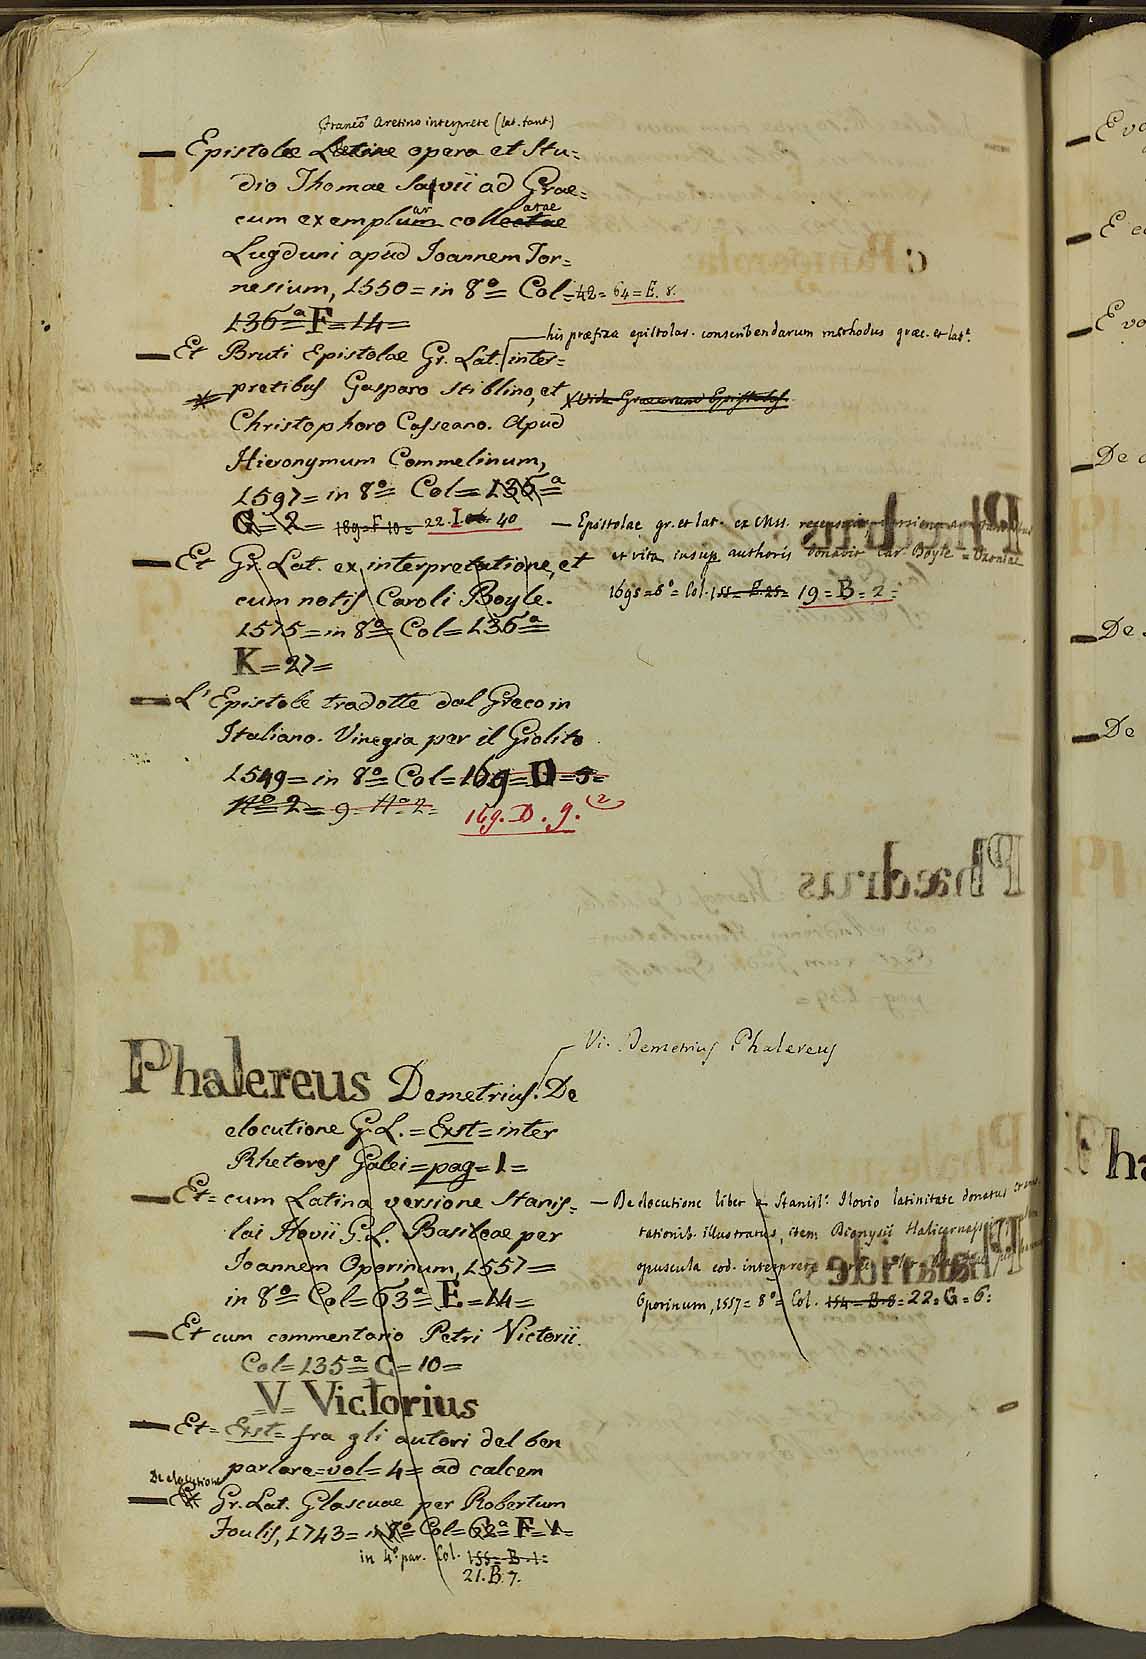 Franc.º Aretino interprete (lat. tant.)
— Epistolae Latine opera et Stu=
dio Thomae Salvii ad Grae=
cum exemplum collectae
ar atae
Lugduni apud Joannem Tor=
nesium, 1550 = in 8º = Col = 42 = 64 = E. 8.
136ª = F = 14 =
— Et Bruti Epistolae Gr. Lat. inter=
his praefixa epistolar. conscribendarum methodus graec. et latª.
pretibus Gasparo Stiblino, et
Christophoro Casseano. Apud
Hieronymum Commelinum,
1597 = in 8º = Col = 136ª =
G = 2 = 189 = F 10 = 22. I = 40
— Et Gr. Lat. ex interpretatione, et
cum notis Caroli Boyle.
1575 = in 8º = Col = 136ª =
K = 27 =
— Epistolae gr. et lat. ex Mss.
et vita insup. authoris donavit Car. Boyle = Oxoniae
1695 = 8º = Col. 155 = 19 = B = 2 =
— L'Epistole tradotte dal Greco in
Italiano. Vinegia per il Giolito
1549 = in 8º = Col = 169 = D = 5 =
Nº 2 = 9 = Nº 2 = 169. D. 9. (2)
Vi. Demetrius Phalereus
Phalereus Demetrius. De
elocutione G. L. = Exst = inter
Rhetores Galei = pag = 1 =
— Et = cum Latina versione Stanis=
lai Ilovii G. L. Basileae per
Joannem Oporinum, 1557 =
in 8º = Col = 63ª = E = 14 =
— De elocutione liber a Stanisl. Ilovio latinitate donatus
tationib. illustratus, item Dionysii Halicarnassei
opuscula eod. interprete
Oporinum, 1557 = 8º = Col. 154 = B. 8 = 22 = G = 6 =
— Et cum commentario Petri Victorii.
Col = 135ª = C = 10 =
V. Victorius
— Et = Exst = fra gli autori del ben
parlare = vol = 4 = ad calcem
De elocutione
— Et Gr. Lat. Glascuae per Robertum
Foulis, 1743 = in 8º = Col = 62ª = F = 1 =
in 4º par. Col. 155 = B. 1 =
21. B. 7.